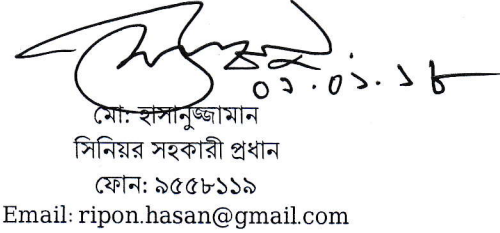 ০১.০১.১৮
মো: হাসানুজ্জামান
সিনিয়র সহকারী প্রধান
ফোন: ৯৫৫৮১১৯
Email: ripon.hasan@gmail.com